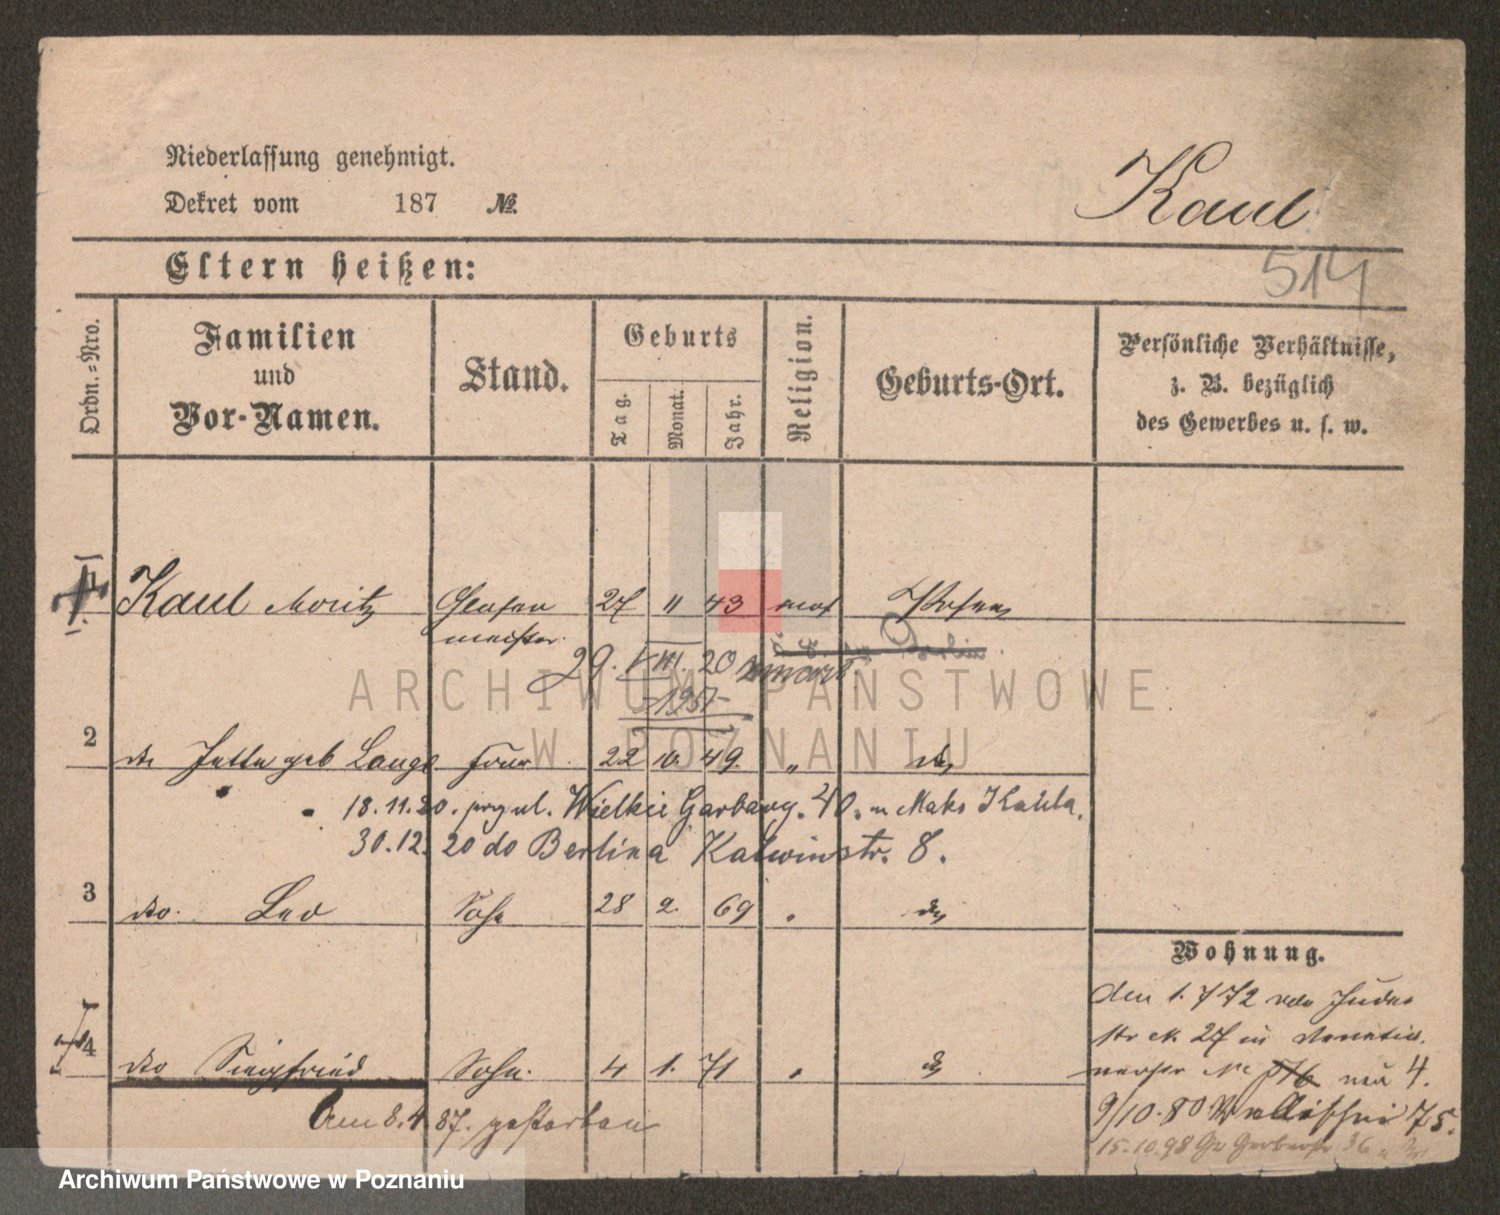 Niederlassung genehmigt.
Dekret vom 187 №.
Kaul
514
Eltern heißen:
Ordn.=Nro.
Familien und Vor-Namen.
Stand.
Geburts
Tag.
Monat.
Jahr.
Religion.
Geburts-Ort.
Persönliche Verhältnisse,
z. B. bezüglich
des Gewerbes u. s. w.
1 Kaul Moritz 27 11 43 mos Posen
meister
29. VIII. 20 zmarł
2 do Jette geb Lange Frau 22 10. 49. " do
18.11.20. przy ul. Wielkie Garbary. 40. u Maks Kahla.
30.12. 20 do Berlina Kalwinstr. 8.
3 do. Leo Sohn 28 2. 69 " do
Wohnung.
den 1. 7 72 von Juden
str 27 in
4 do Siegfried Sohn. 4 1. 71 " do
No 4.
am 8.4 87. gestorben
9/10.80 Wallischei 75.
15.10.98 Gr Gerberstr 36
ARCHIWUM PAŃSTWOWE
W POZNANIU
Archiwum Państwowe w Poznaniu